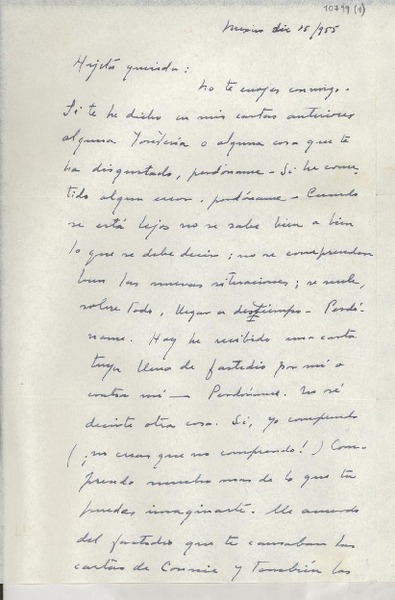 10799 (1)
Mexico dic 15/955
Hijita querida:
No te enojes conmigo.
Si te he dicho en mis cartas anteriores
alguna tontería o alguna cosa que te
ha disgustado, perdóname - Si he come-
tido algun error, perdóname - Cuando
se está lejos no se sabe bien a bien
lo que se debe decir; no se comprenden
bien las nuevas situaciones; se suele,
sobre todo, llegar a destiempo - Perdó-
name. Hoy he recibido una carta
tuya llena de fastidio por mí o
contra mí — Perdóname. No sé
decirte otra cosa. Si, yo comprendo
( ¡no creas que no comprendo! ) Com-
prendo mucho mas de lo que tu
puedas imaginarte. Me acuerdo
del fastidio que te causaban las
cartas de Connie y también las